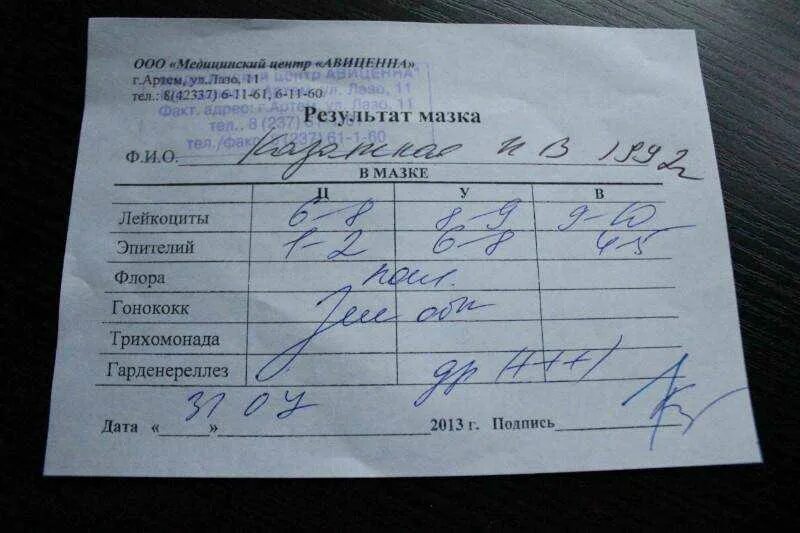 ООО «Медицинский центр «АВИЦЕННА»
г.Артем, ул.Лазо, 11
тел.: 8(42337) 6-11-61, 6-11-60
центр АВИЦЕННА
Факт. адрес: г.Артем, ул. Лазо, 11
тел., 8 (237)
тел./факс 61-1-60
Результат мазка
Ф.И.О. Казанская И В 1992г
В МАЗКЕ
Ц У В
Лейкоциты 6-8 8-9 9-10
Эпителий 1-2 6-8 4-5
Флора
Гонококк обн
Трихомонада
Гарденереллез др (+++)
Дата «31» 04 2013 г. Подпись